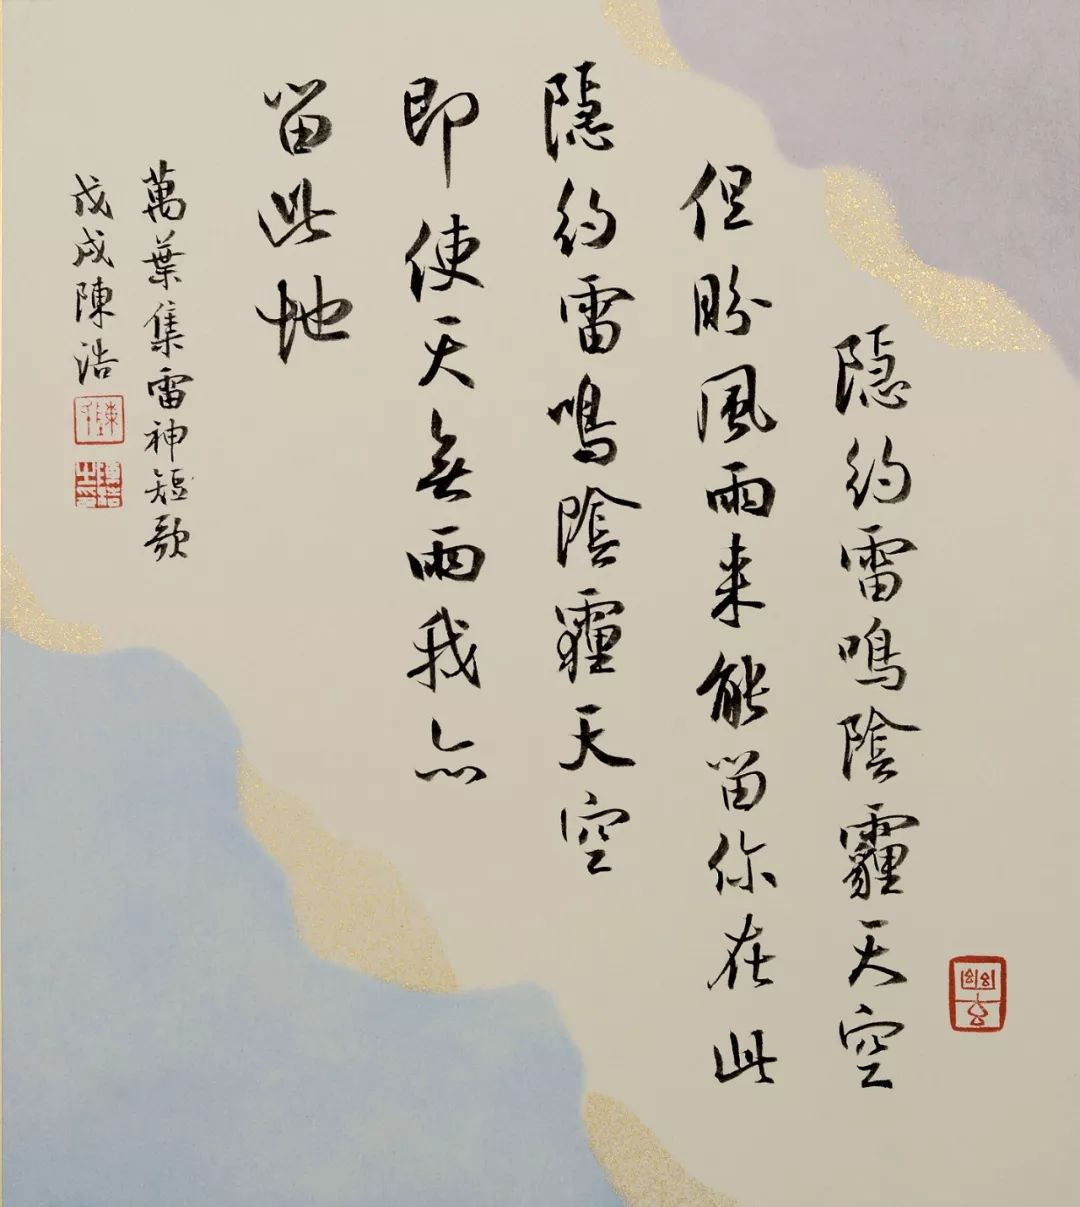 隐約雷鳴陰霾天空
但盼風雨来能留你在此
隐約雷鳴陰霾天空
即使天無雨我亦
留此地
萬葉集雷神短歌
戊戌陳浩
幽玄